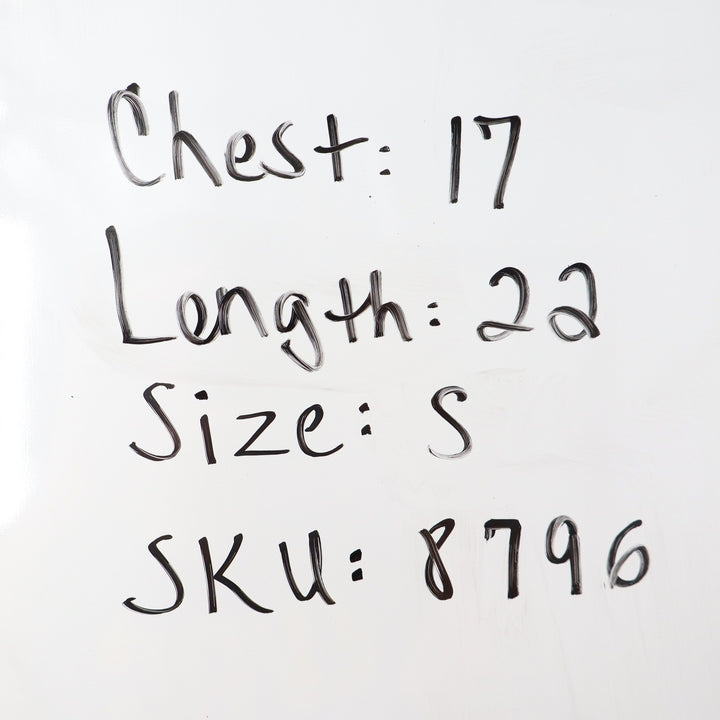 Chest: 17
Length: 22
Size: S
SKU: 8796